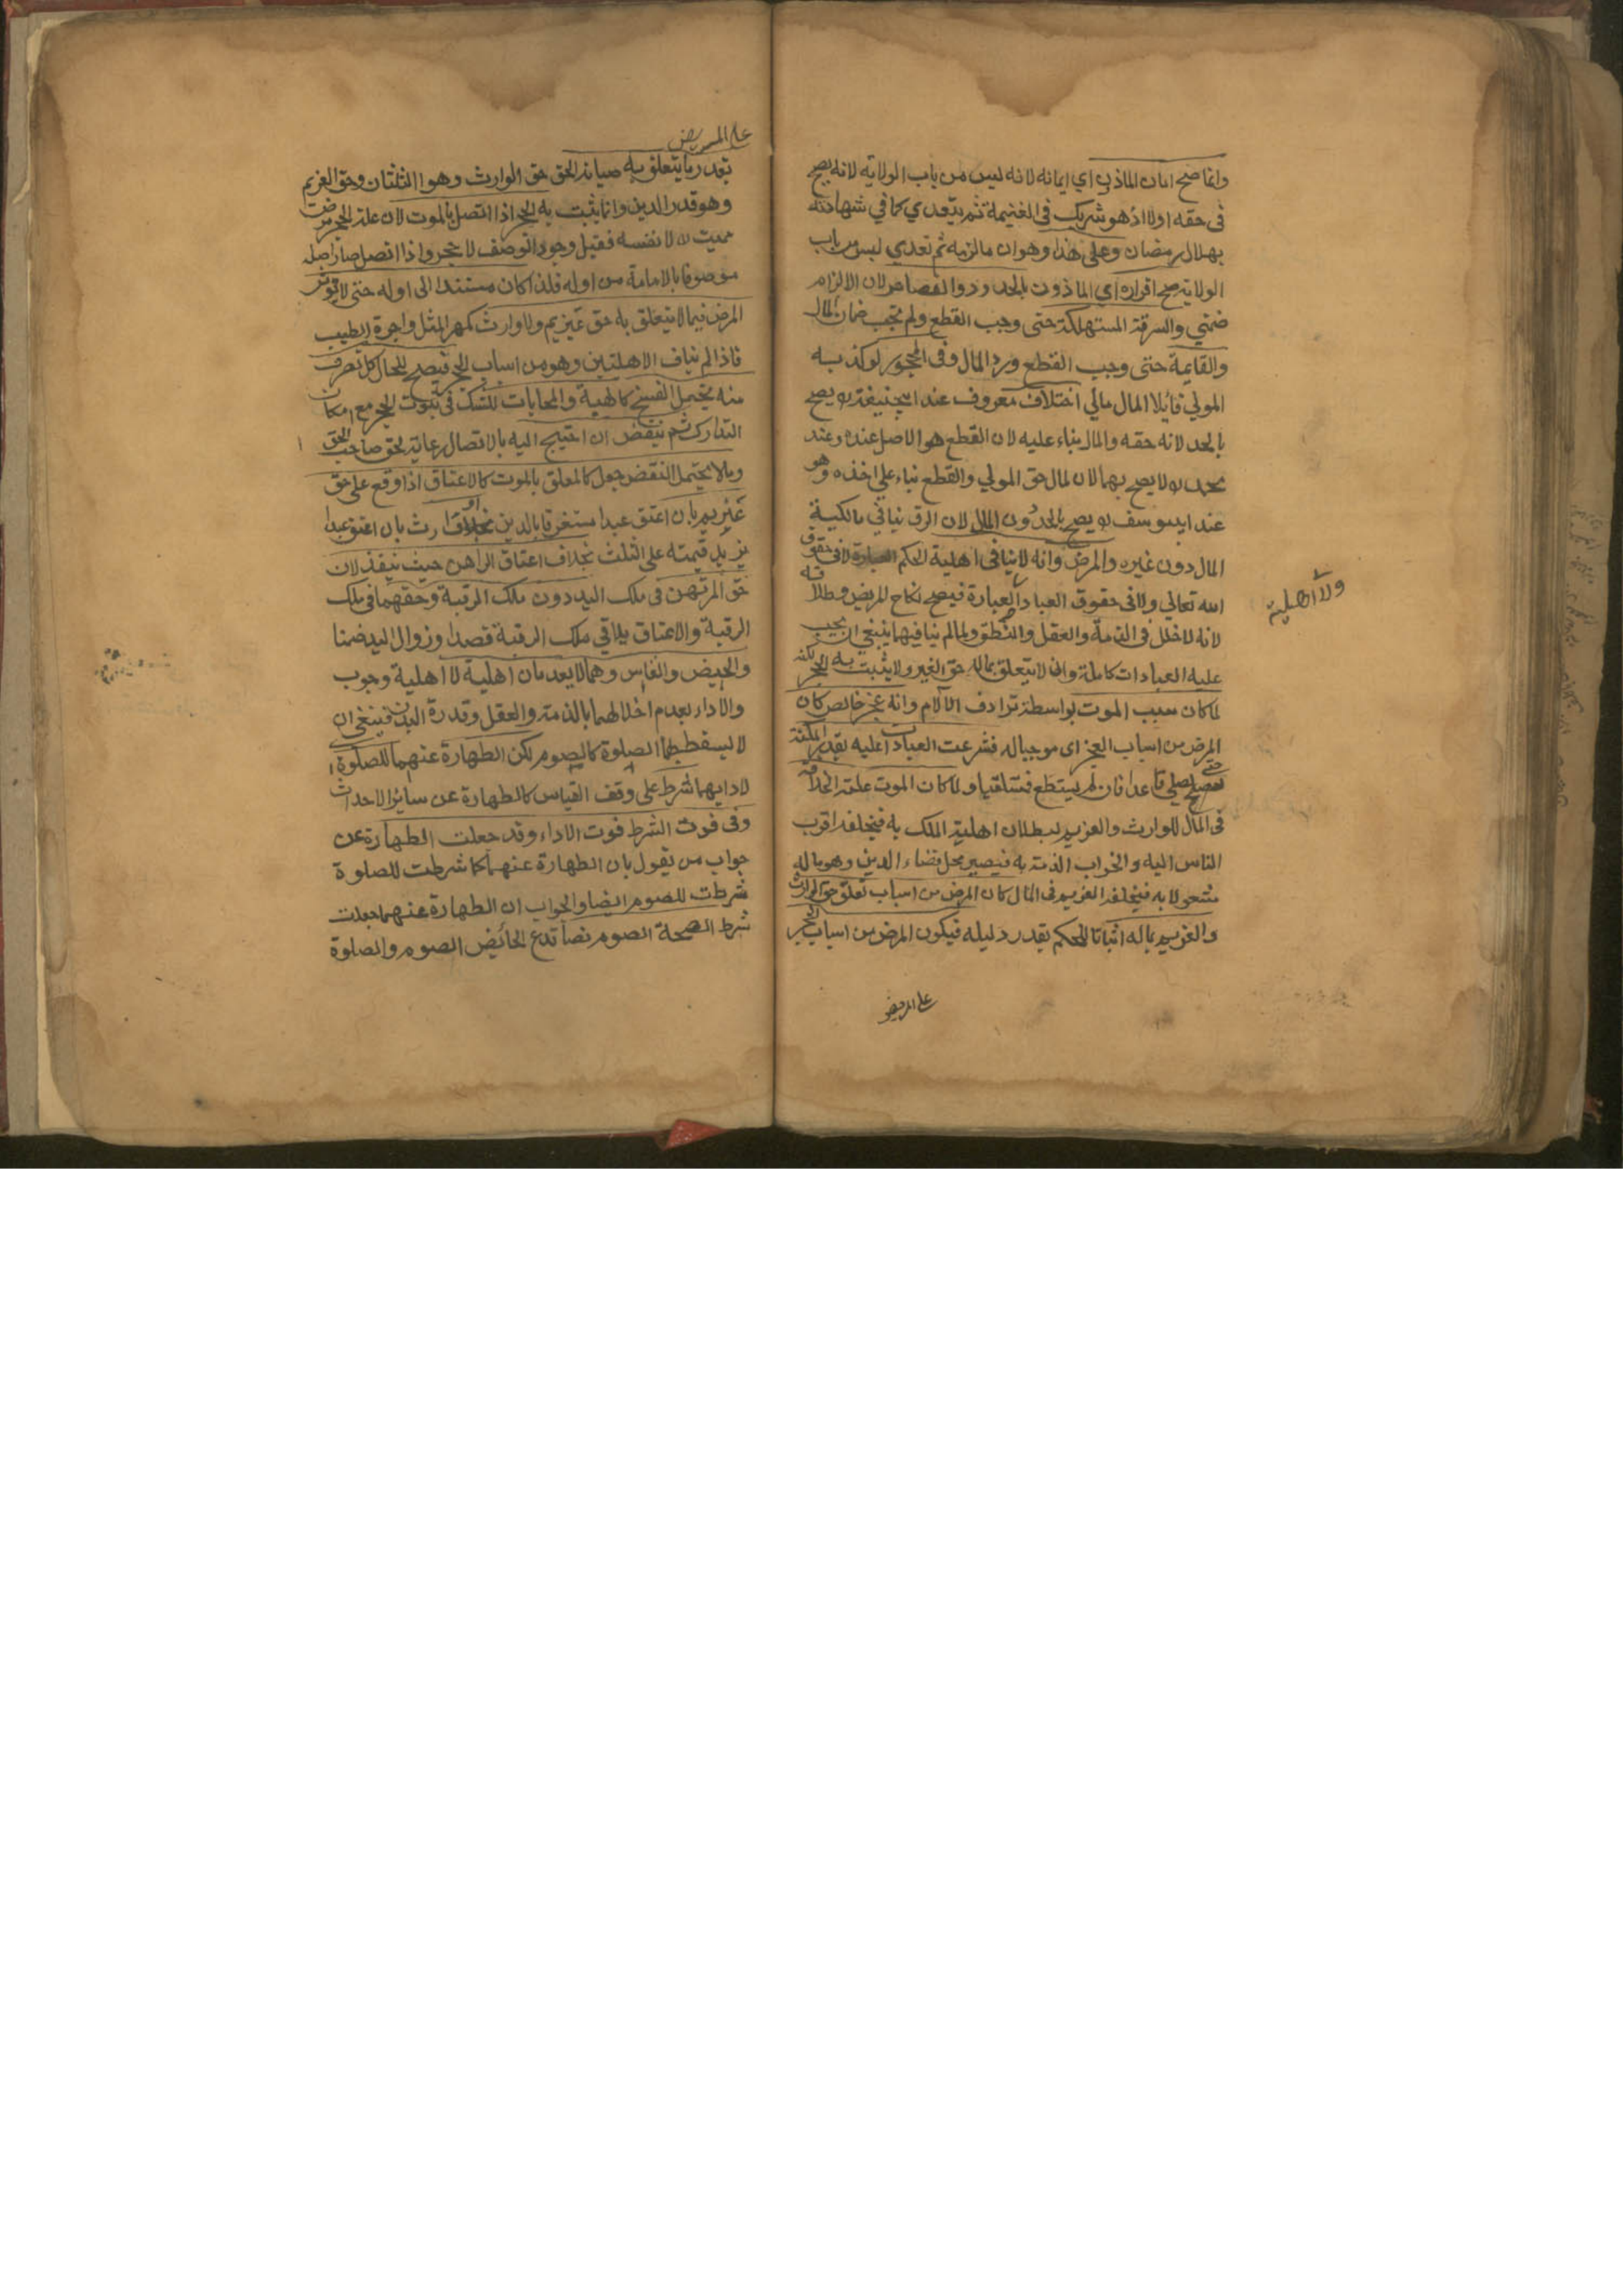 وانما صح امان الماذون اي ايمانه لانه ليس من باب الولاية لانه يصح
فى حقه اولا اذ هو شريك فى الغنيمة ثم يتعدي كما في شهادته
بهلال رمضان وعلى هذا وهو ان ما لزمه ثم تعدي ليس من باب
الولاية صح اقراره اي الماذون بالحدود والقصاص لان الالزام
ضمني والسرقة المستهلكة حتى وجب القطع ولم يجب ضمان المال
والقايمة حتى وجب القطع ورد المال وفى المحجور لو كذبه
المولي قايلا المال مالي اختلاف معروف عند ابيحنيفة رد يصح
بالحد لانه حقه والمال بناء عليه لان القطع هو الاصل عنده وعند
محمد رد لا يصح بهما لان المال حق المولي والقطع بناء على اخذه وهو
عند ابيوسف رد يصح بالحد دون المال لان الرق ينافي مالكية
المال دون غيره والمرض وانه لا ينافى اهلية الحكم لافى حقوق
الله تعالي ولا فى حقوق العباد العبارة فيصح نكاح المريض وطلاقه
ولا اهلية
لانه لا خلل فى الذمة والعقل والنطق ولما لم ينافيهما ينبغي ان يجب
عليه العبادات كاملة وان لا يتعلق بماله حق الغير ولا يثبت به الحجر لكنه
لما كان سبب الموت بواسطة ترادف الآلام وانه عجز خالص كان
المرض من اسباب العجز اى موجباله فشرعت العبادات عليه بقدر المكنة
حتى يصلي قاعدا فان لم يستطع فمستلقيا ولما كان الموت علة الخلافة
فى المال للوارث والغريم لبطلان اهلية الملك به فيخلفه اقرب
الناس اليه والخراب الذمة به فيصير محل قضاء الدين وهو ماله
مشغولا به فيخلفه الغريم فى المال كان المرض من اسباب تعلق حق الوارث
والغريم بماله اثباتا للحكم بقدر دليله فيكون المرض من اسباب الحجر
على المريض
على المريض
بقدر ما يتعلق به صيانة الحق حق الوارث وهو الثلثان وحق الغريم
وهو قدر الدين وانما يثبت به الحجر اذا اتصل بالموت لان علة الحجر مرض
مميت لا نفسه فقبل وجود الوصف لا حجر واذا اتصل صار اصله
موصوفا بالاماتة من اوله فلذا كان مستندا الى اوله حتى لا يوثر
المرض فيما لا يتعلق به حق غريم ولا وارث كمهر المثل واجرة الطبيب
فاذا لم يناف الاهليتين وهو من اسباب الحجر فيصح للحال كل تصرف
منه يحتمل الفسخ كالهبة والمحابات للشك فى ثبوت الحجر مع امكان
التدارك ثم ينقض ان احتيج اليه بالاتصال رعاية لحق صاحب الحق
وما لا يحتمل النقض جعل كالمعلق بالموت كالاعتاق اذا وقع على حق
غريم بان اعتق عبدا مستغرقا بالدين او وارث بان اعتق عبدا
يزيد قيمته على الثلث بخلاف اعتاق الراهن حيث ينفذ لان
حق المرتهن فى ملك اليد دون ملك الرقبة وحقهما فى ملك
الرقبة والاعتاق يلاقي ملك الرقبة قصدا وزوال اليد ضمنا
والحيض والنفاس وهما لا يعدمان اهلية لا اهلية وجوب
والاداء لعدم اخلالهما بالذمة والعقل وقدرة البدن فينبغى ان
لا يسقط بهما الصلوة كالصوم لكن الطهارة عنهما للصلوة
لادايهما شرط على وفق القياس كالطهارة عن سائر الاحداث
وفى فوت الشرط فوت الاداء وقد جعلت الطهارة عن
جواب من يقول بان الطهارة عنهما كما شرطت للصلوة
شرطت للصوم ايضا والجواب ان الطهارة عنهما جعلت
شرط الصحة الصوم نصا تدع الحائض الصوم والصلوة